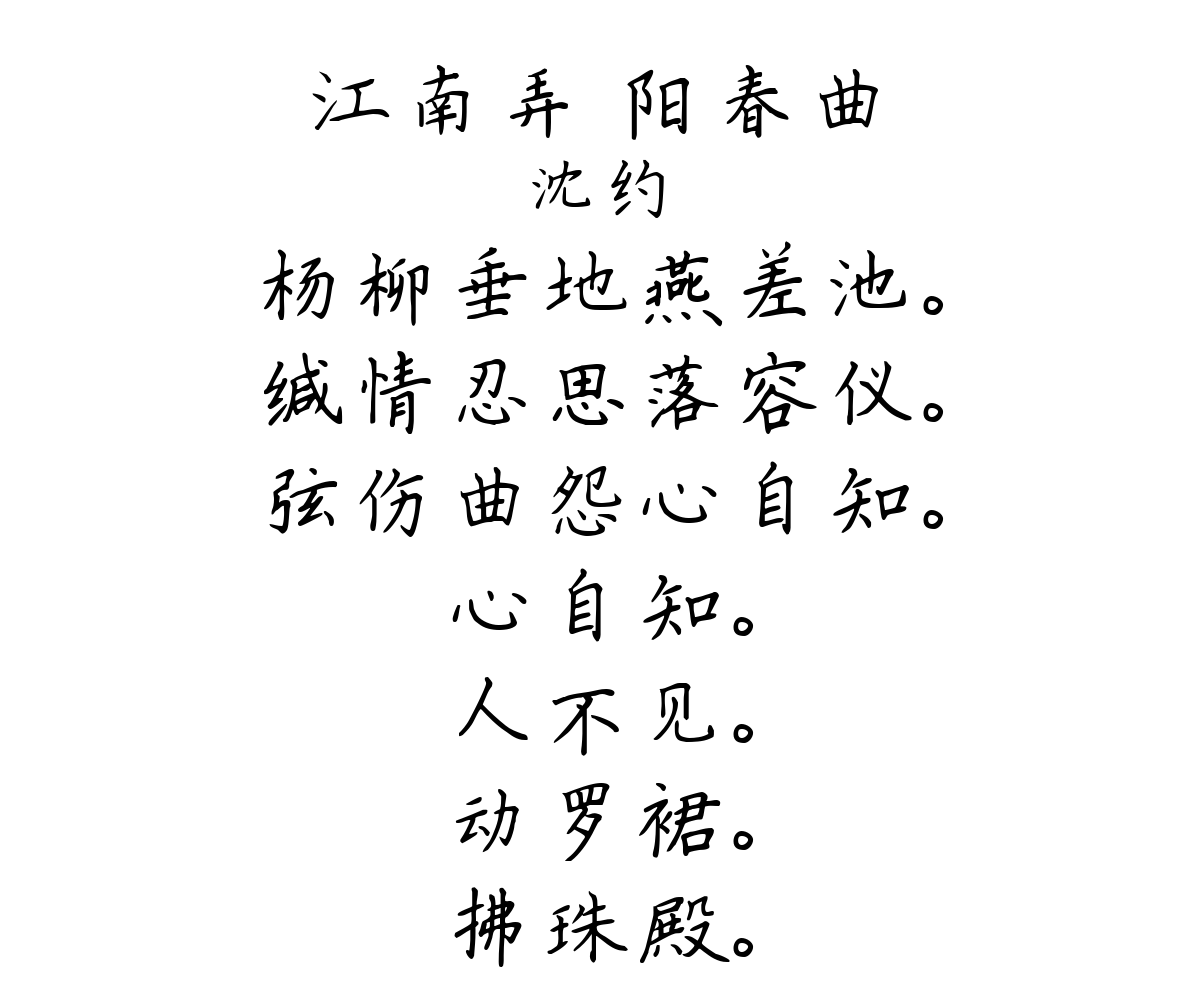 江南弄 阳春曲
沈约
杨柳垂地燕差池。
缄情忍思落容仪。
弦伤曲怨心自知。
心自知。
人不见。
动罗裙。
拂珠殿。